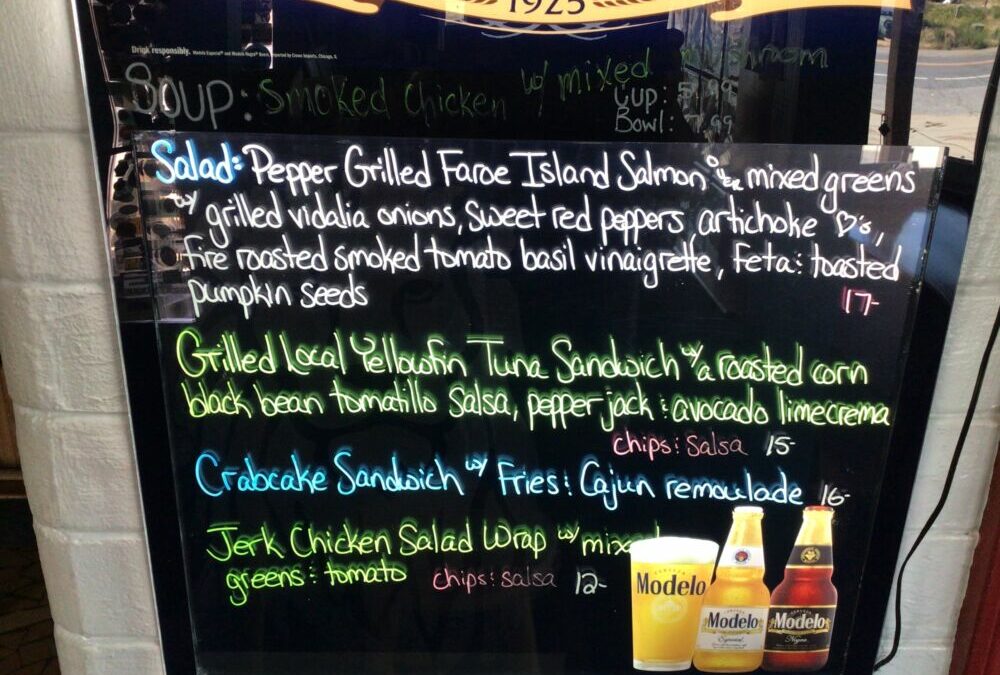 1925
Drink responsibly.
Soup: Smoked Chicken w/ mixed mushroom
Cup: 5.99
Bowl: 7.99
Salad: Pepper Grilled Faroe Island Salmon over mixed greens
w/ grilled vidalia onions, sweet red peppers artichoke ♡'s,
fire roasted smoked tomato basil vinaigrette, Feta : toasted
pumpkin seeds 17-
Grilled Local Yellowfin Tuna Sandwich w/ a roasted corn
black bean tomatillo salsa, pepper jack : avocado limecrema
chips : salsa 15-
Crabcake Sandwich w/ Fries : Cajun remoulade 16-
Jerk Chicken Salad Wrap w/ mixed
greens : tomato chips : salsa 12-
Modelo
Modelo
Especial
Modelo
Negra